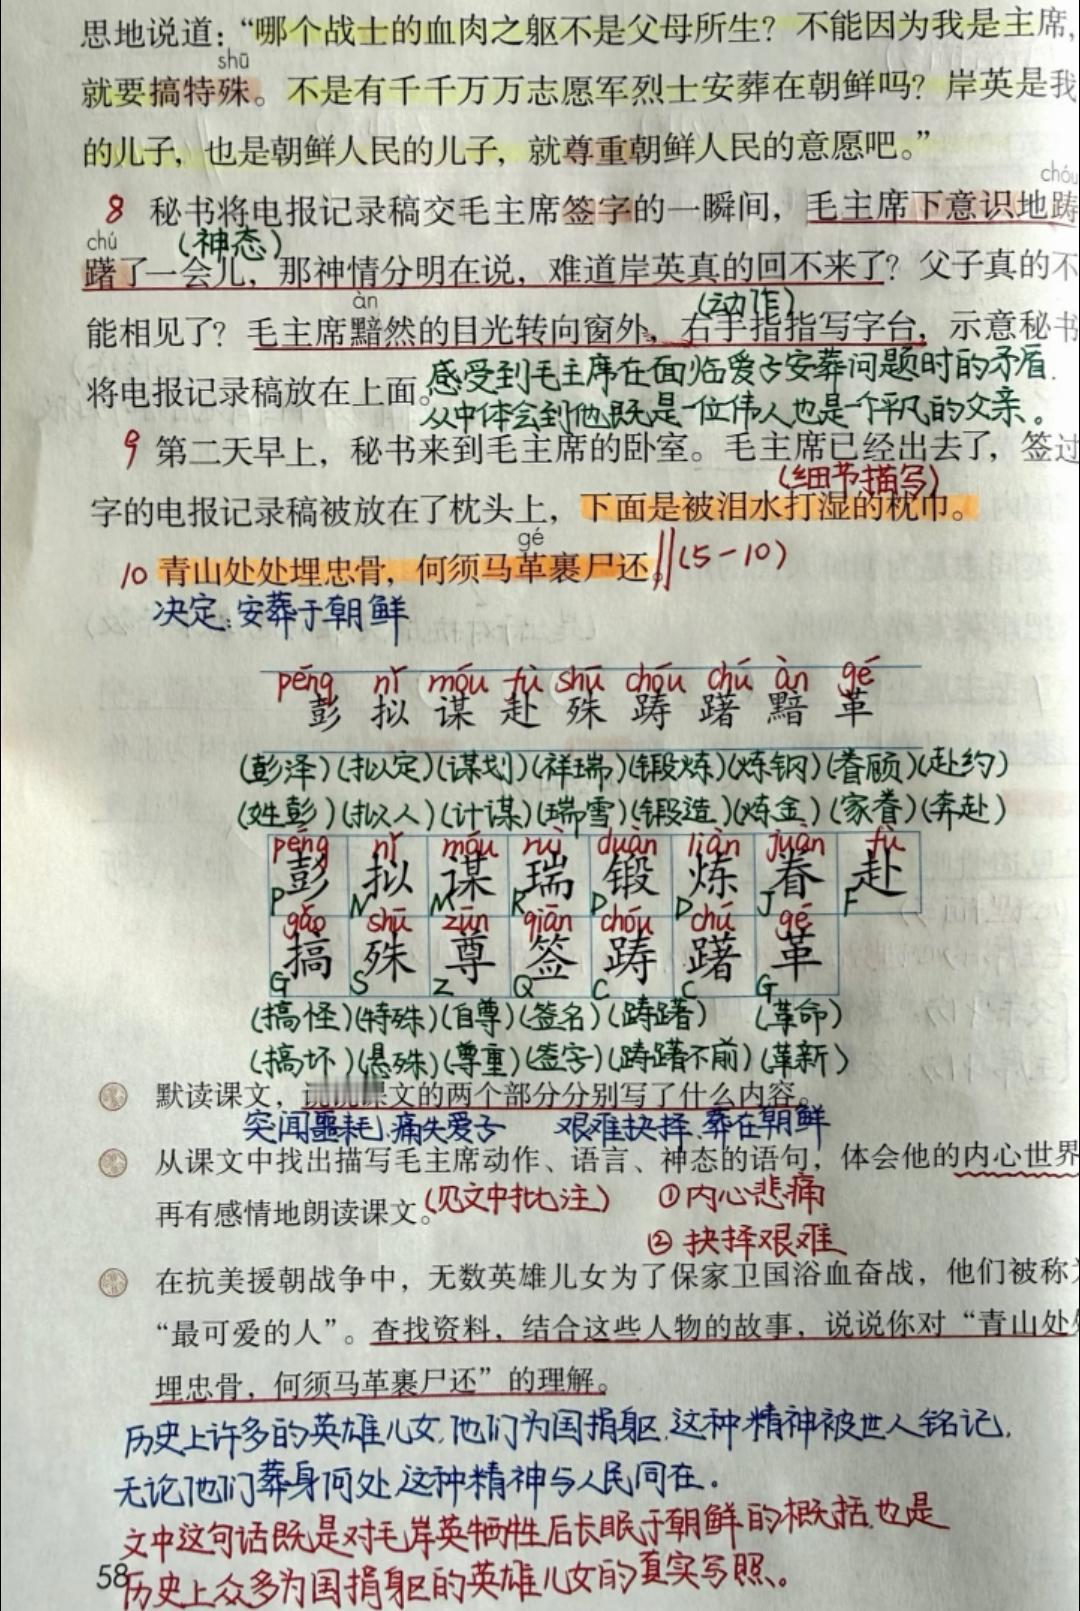 思地说道：“哪个战士的血肉之躯不是父母所生？不能因为我是主席，
shū
就要搞特殊。不是有千千万万志愿军烈士安葬在朝鲜吗？岸英是我
的儿子，也是朝鲜人民的儿子，就尊重朝鲜人民的意愿吧。”
chóu
8 秘书将电报记录稿交毛主席签字的一瞬间，毛主席下意识地踌
chú (神态)
躇了一会儿，那神情分明在说，难道岸英真的回不来了？父子真的不
àn (动作)
能相见了？毛主席黯然的目光转向窗外，右手指指写字台，示意秘书
将电报记录稿放在上面。感受到毛主席在面临爱子安葬问题时的矛盾.
从中体会到他既是一位伟人也是一个平凡的父亲。
9 第二天早上，秘书来到毛主席的卧室。毛主席已经出去了，签过
(细节描写)
字的电报记录稿被放在了枕头上，下面是被泪水打湿的枕巾。
gé
10 青山处处埋忠骨，何须马革裹尸还。∥(5-10)
决定:安葬于朝鲜
péng nǐ móu fù shū chóu chú àn gé
彭 拟 谋 赴 殊 踌 躇 黯 革
(彭泽)(拟定)(谋划)(祥瑞)(锻炼)(炼钢)(眷顾)(赴约)
(姓彭)(拟人)(计谋)(瑞雪)(锻造)(炼金)(家眷)(奔赴)
péng nǐ móu ruì duàn liàn juàn fù
彭 拟 谋 瑞 锻 炼 眷 赴
P N M R D D J F
gǎo shū zūn qiān chóu chú gé
搞 殊 尊 签 踌 躇 革
G S Z Q C C G
(搞怪)(特殊)(自尊)(签名)(踌躇) (革命)
(搞坏)(悬殊)(尊重)(签字)(踌躇不前)(革新)
默读课文，说说课文的两个部分分别写了什么内容。
突闻噩耗,痛失爱子 艰难抉择.葬在朝鲜
从课文中找出描写毛主席动作、语言、神态的语句，体会他的内心世界
再有感情地朗读课文。(见文中批注) ①内心悲痛
②抉择艰难
在抗美援朝战争中，无数英雄儿女为了保家卫国浴血奋战，他们被称为
“最可爱的人”。查找资料，结合这些人物的故事，说说你对“青山处处
埋忠骨，何须马革裹尸还”的理解。
历史上许多的英雄儿女,他们为国捐躯.这种精神被世人铭记.
无论他们葬身何处,这种精神与人民同在.
文中这句话既是对毛岸英牺牲后长眠于朝鲜的概括,也是
58 历史上众多为国捐躯的英雄儿女的真实写照。